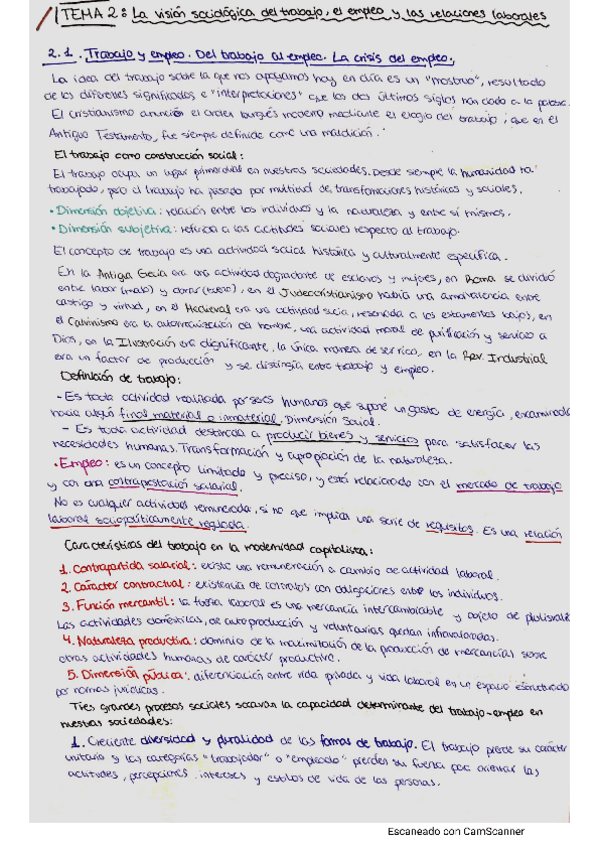 TEMA 2: La visión sociológica del trabajo, el empleo y las relaciones laborales
2.1. Trabajo y empleo. Del trabajo al empleo. La crisis del empleo.
La idea del trabajo sobre la que nos apoyamos hoy en día es un "mostruo", resultado
de los diferentes significados e "interpretaciones" que los dos últimos siglos han dado a la palabra.
El cristianismo anunció el orden burgués moderno mediante el elogio del trabajo; que en el
Antiguo Testamento, fue siempre definido como una maldición.
El trabajo como construcción social:
El trabajo ocupa un lugar primordial en nuestras sociedades. Desde siempre la humanidad ha
trabajado, pero el trabajo ha pasado por multitud de transformaciones históricas y sociales.
• Dimensión objetiva: relación entre los individuos y la naturaleza y entre sí mismos.
• Dimensión subjetiva: referida a las actitudes sociales respecto al trabajo.
El concepto de trabajo es una actividad social histórica y culturalmente específica.
En la Antigua Grecia era una actividad degradante de esclavos y mujeres, en Roma se dividió
entre labor (malo) y obra (bueno), en el Judeocristianismo había una ambivalencia entre
castigo y virtud, en el Medieval era una actividad sucia, reservada a los estamentos bajos, en
el Calvinismo era la automatización del hombre, una actividad moral de purificación y servicio a
Dios, en la Ilustración era dignificante, la única manera de ser rico, en la Rev. Industrial
era un factor de producción y se distinguía entre trabajo y empleo.
Definición de trabajo:
- Es toda actividad realizada por seres humanos que supone un gasto de energía, encaminada
hacia algún final material o inmaterial. Dimensión Social.
- Es toda actividad destinada a producir bienes y servicios para satisfacer las
necesidades humanas. Transformación y apropiación de la naturaleza.
• Empleo: es un concepto limitado y preciso, y está relacionado con el mercado de trabajo
y con una contraprestación salarial.
No es cualquier actividad remunerada, si no que implica una serie de requisitos. Es una relación
laboral sociopolíticamente regulada.
Características del trabajo en la modernidad capitalista:
1. Contrapartida salarial: existe una remuneración a cambio de actividad laboral.
2. Carácter contractual: existencia de contratos con obligaciones entre los individuos.
3. Función mercantil: la fuerza laboral es una mercancía intercambiable y objeto de
Las actividades domésticas, de autoproducción y voluntarias quedan infravaloradas.
4. Naturaleza productiva: dominio de la maximización de la producción de mercancías sobre
otras actividades humanas de carácter productivo.
5. Dimensión pública: diferenciación entre vida privada y vida laboral en un espacio estructurado
por normas jurídicas.
Tres grandes procesos sociales socavan la capacidad determinante del trabajo-empleo en
nuestras sociedades:
1. Creciente diversidad y pluralidad de las formas de trabajo. El trabajo pierde su carácter
unitario y las categorías "trabajador" o "empleado" pierden su fuerza para orientar las
actitudes, percepciones, intereses y estilos de vida de las personas.
Escaneado con CamScanner